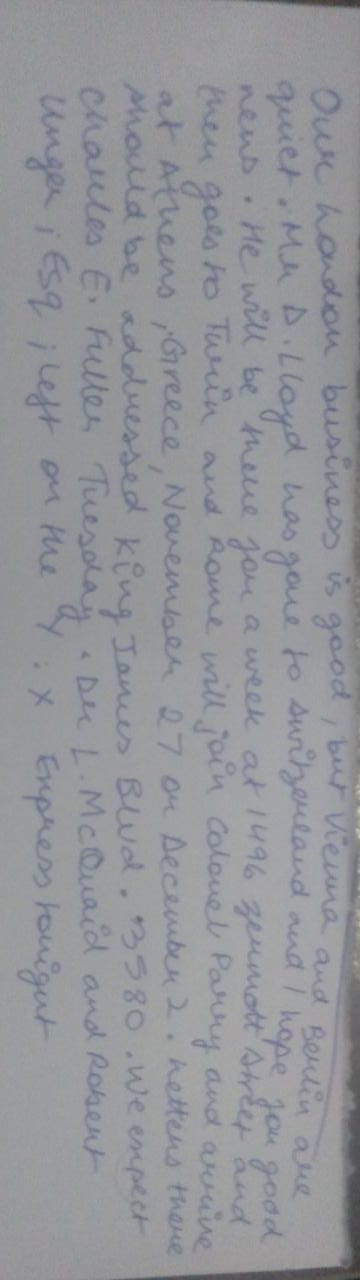 Our London business is good, but Vienna and Berlin are
quiet. Mr D. Lloyd has gone to Switzerland and I hope for good
news. He will be there for a week at 1496 zermott Street and
then goes to Turin and Rome will join Colonel Parry and arrive
at Athens, Greece, November 27 or December 2. Letters there
should be addressed King James Blvd. 3580. We expect
Charles E. Fuller Tuesday. Dr L. McQuaid and Robert
Unger, Esq, left on the Y. X Express tonight